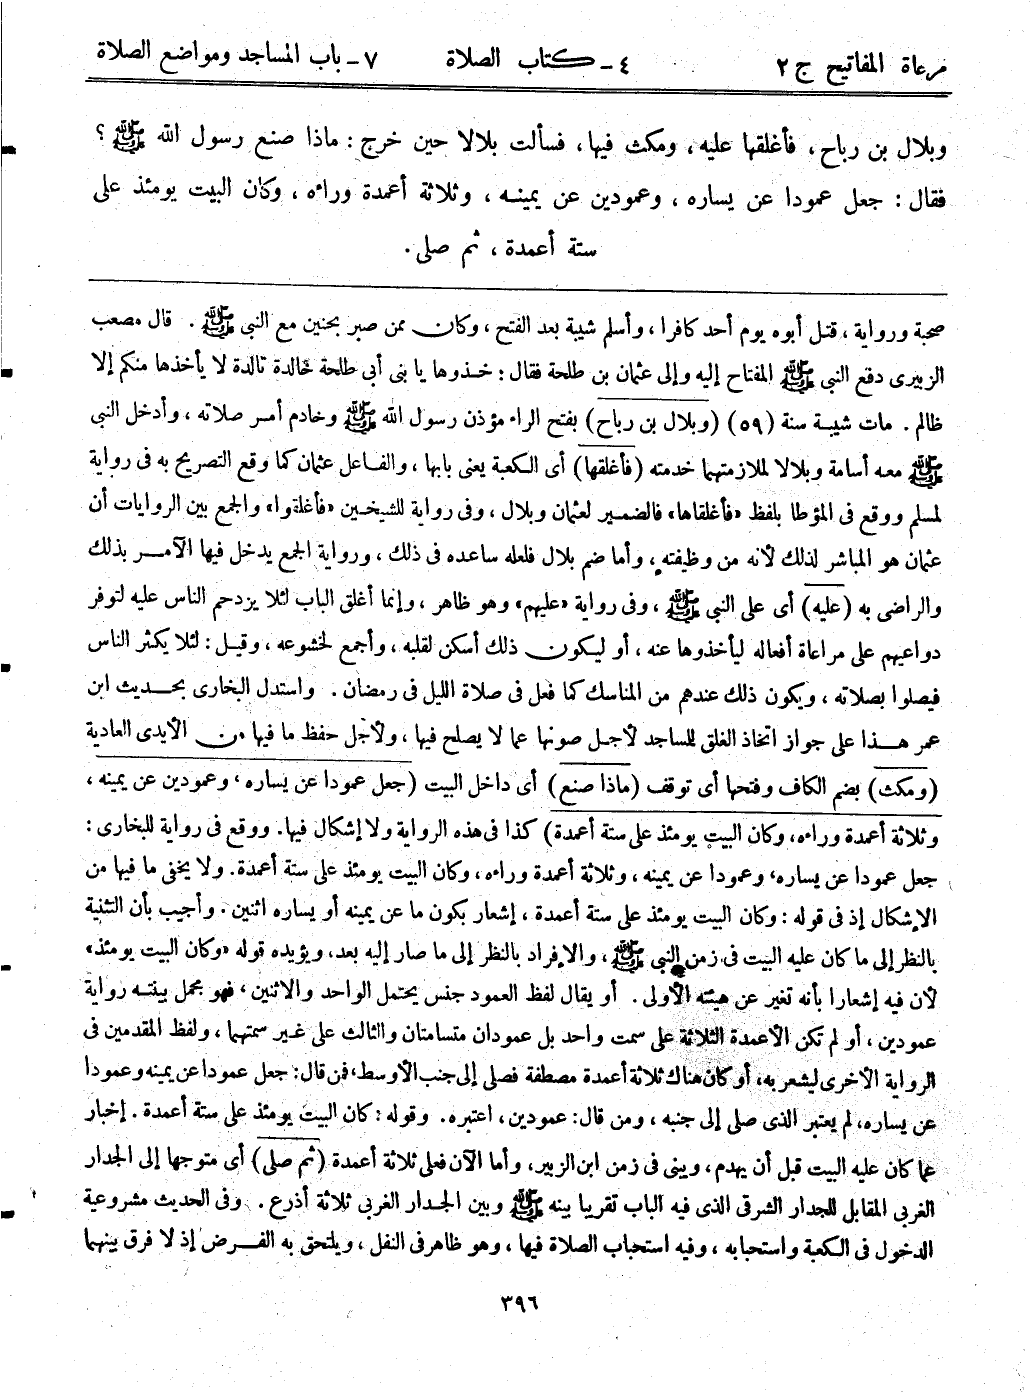 مرعاة المفاتيح ج ٢ ٤ - كتاب الصلاة ٧ - باب المساجد ومواضع الصلاة
وبلال بن رباح، فأغلقها عليه، ومكث فيها، فسألت بلالا حين خرج: ماذا صنع رسول الله ﷺ؟
فقال: جعل عمودا عن يساره، وعمودين عن يمينه، وثلاثة أعمدة وراءه، وكان البيت يومئذ على
ستة أعمدة، ثم صلى.
صحبة ورواية، قتل أبوه يوم أحد كافرا، وأسلم شيبة بعد الفتح، وكان ممن صبر بحنين مع النبي ﷺ. قال مصعب
الزبيرى دفع النبي ﷺ المفتاح إليه وإلى عثمان بن طلحة فقال: خذوها يا بنى أبى طلحة خالدة تالدة لا يأخذها منكم إلا
ظالم. مات شيبة سنة (٥٩) (وبلال بن رباح) بفتح الراء مؤذن رسول الله ﷺ وخادم أمر صلاته، وأدخل النبي
ﷺ معه أسامة وبلالا لملازمتهما خدمته (فأغلقها) أى الكعبة يعنى بابها، والفاعل عثمان كما وقع التصريح به فى رواية
لمسلم ووقع فى المؤطا بلفظ «فأغلقاها» فالضمير لعثمان وبلال، وفى رواية للشيخين «فأغلقوا» والجمع بين الروايات أن
عثمان هو المباشر لذلك لأنه من وظيفته، وأما ضم بلال فلعله ساعده فى ذلك، ورواية الجمع يدخل فيها الآمر بذلك
والراضى به (عليه) أى على النبي ﷺ، وفى رواية «عليهم» وهو ظاهر، وإنما أغلق الباب لئلا يزدحم الناس عليه لتوفر
دواعيهم على مراعاة أفعاله ليأخذوها عنه، أو ليكون ذلك أسكن لقلبه، وأجمع لخشوعه، وقيل: لئلا يكثر الناس
فيصلوا بصلاته، ويكون ذلك عندهم من المناسك كما فعل فى صلاة الليل فى رمضان. واستدل البخارى بحديث ابن
عمر هذا على جواز اتخاذ الغلق للمساجد لأجل صونها عما لا يصلح فيها، ولأجل حفظ ما فيها من الأيدى العادية
(ومكث) بضم الكاف وفتحها أى توقف (ماذا صنع) أى داخل البيت (جعل عمودا عن يساره، وعمودين عن يمينه،
وثلاثة أعمدة وراءه، وكان البيت يومئذ على ستة أعمدة) كذا فى هذه الرواية ولا إشكال فيها. ووقع فى رواية للبخارى:
جعل عمودا عن يساره، وعمودا عن يمينه، وثلاثة أعمدة وراءه، وكان البيت يومئذ على ستة أعمدة. ولا يخفى ما فيها من
الإشكال إذ فى قوله: وكان البيت يومئذ على ستة أعمدة، إشعار بكون ما عن يمينه أو يساره اثنين. وأجيب بأن التثنية
بالنظر إلى ما كان عليه البيت فى زمن النبي ﷺ، والإفراد بالنظر إلى ما صار إليه بعد، ويؤيده قوله «وكان البيت يومئذ»
لأن فيه إشعارا بأنه تغير عن هيئته الأولى. أو يقال لفظ العمود جنس يحتمل الواحد والاثنين، فهو مجمل بينته رواية
عمودين، أو لم تكن الأعمدة الثلاثة على سمت واحد بل عمودان متسامتان والثالث على غير سمتهما، ولفظ المقدمين فى
الرواية الأخرى ليشعر به، أو كان هناك ثلاثة أعمدة مصطفة فصلى إلى جنب الأوسط، فمن قال: جعل عمودا عن يمينه وعمودا
عن يساره، لم يعتبر الذى صلى إلى جنبه، ومن قال: عمودين، اعتبره. وقوله: كان البيت يومئذ على ستة أعمدة. إخبار
عما كان عليه البيت قبل أن يهدم، ويبنى فى زمن ابن الزبير، وأما الآن فعلى ثلاثة أعمدة (ثم صلى) أى متوجها إلى الجدار
الغربى المقابل للجدار الشرقى الذى فيه الباب تقريبا بينه ﷺ وبين الجدار الغربى ثلاثة أذرع. وفى الحديث مشروعية
الدخول فى الكعبة واستحبابه، وفيه استحباب الصلاة فيها، وهو ظاهر فى النفل، ويلتحق به الفرض إذ لا فرق بينهما
٣٩٦